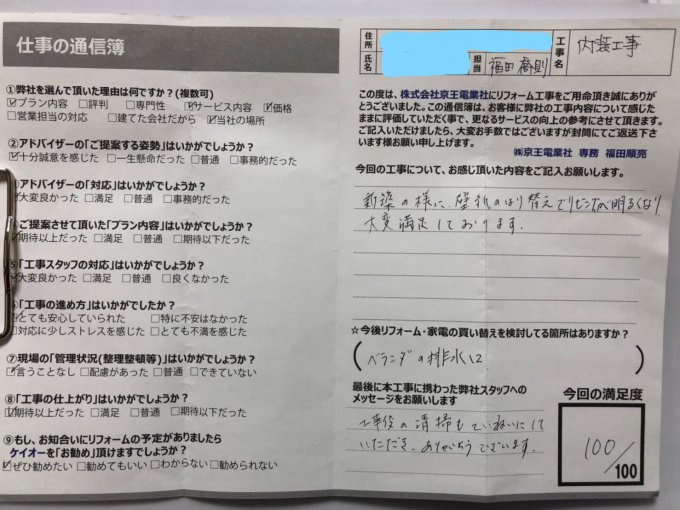 仕事の通信簿
①弊社を選んで頂いた理由は何ですか？(複数可)
☑プラン内容 □評判 □専門性 ☑サービス内容 ☑価格
□営業担当の対応 □建てた会社だから ☑当社の場所
②アドバイザーの「ご提案する姿勢」はいかがでしょうか？
☑十分誠意を感じた □一生懸命だった □普通 □事務的だった
アドバイザーの「対応」はいかがでしょうか？
☑大変良かった □満足 □普通 □事務的だった
ご提案させて頂いた「プラン内容」はいかがでしょうか？
☑期待以上だった □満足 □普通 □期待以下だった
「工事スタッフの対応」はいかがでしょうか？
☑大変良かった □満足 □普通 □良くなかった
「工事の進め方」はいかがでしたか？
☑とても安心していられた □特に不安はなかった
□対応に少しストレスを感じた □とても不満を感じた
⑦現場の「管理状況(整理整頓等)」はいかがでしょうか？
☑言うことなし □配慮があった □普通 □できていない
⑧「工事の仕上がり」はいかがでしょうか？
☑期待以上だった □満足 □普通 □期待以下だった
⑨もし、お知合いにリフォームの予定がありましたら
ケイオーを「お勧め」頂けますでしょうか？
☑ぜひ勧めたい □勧めてもいい □わからない □勧められない
住所
氏名
担当
福田
工事名
内装工事
この度は、株式会社京王電業社にリフォーム工事をご用命頂き誠にありが
とうございました。この通信簿は、お客様に弊社の工事内容について感じた
ままに評価していただく事で、更なるサービスの向上の参考にさせて頂きます。
ご記入いただけましたら、大変お手数ではございますが封筒にてご返送下さ
います様お願い申し上げます。
㈱京王電業社 専務 福田順亮
今回の工事について、お感じ頂いた内容をご記入お願いします。
新築の様に、壁紙のはり替えでリビングが明るくなり
大変満足しております。
☆今後リフォーム・家電の買い替えを検討してる箇所はありますか？
(ベランダの排水口)
最後に本工事に携わった弊社スタッフへの
メッセージをお願いします
工事後の清掃もていねいにして
いただき、ありがとうございます。
今回の満足度
100/100